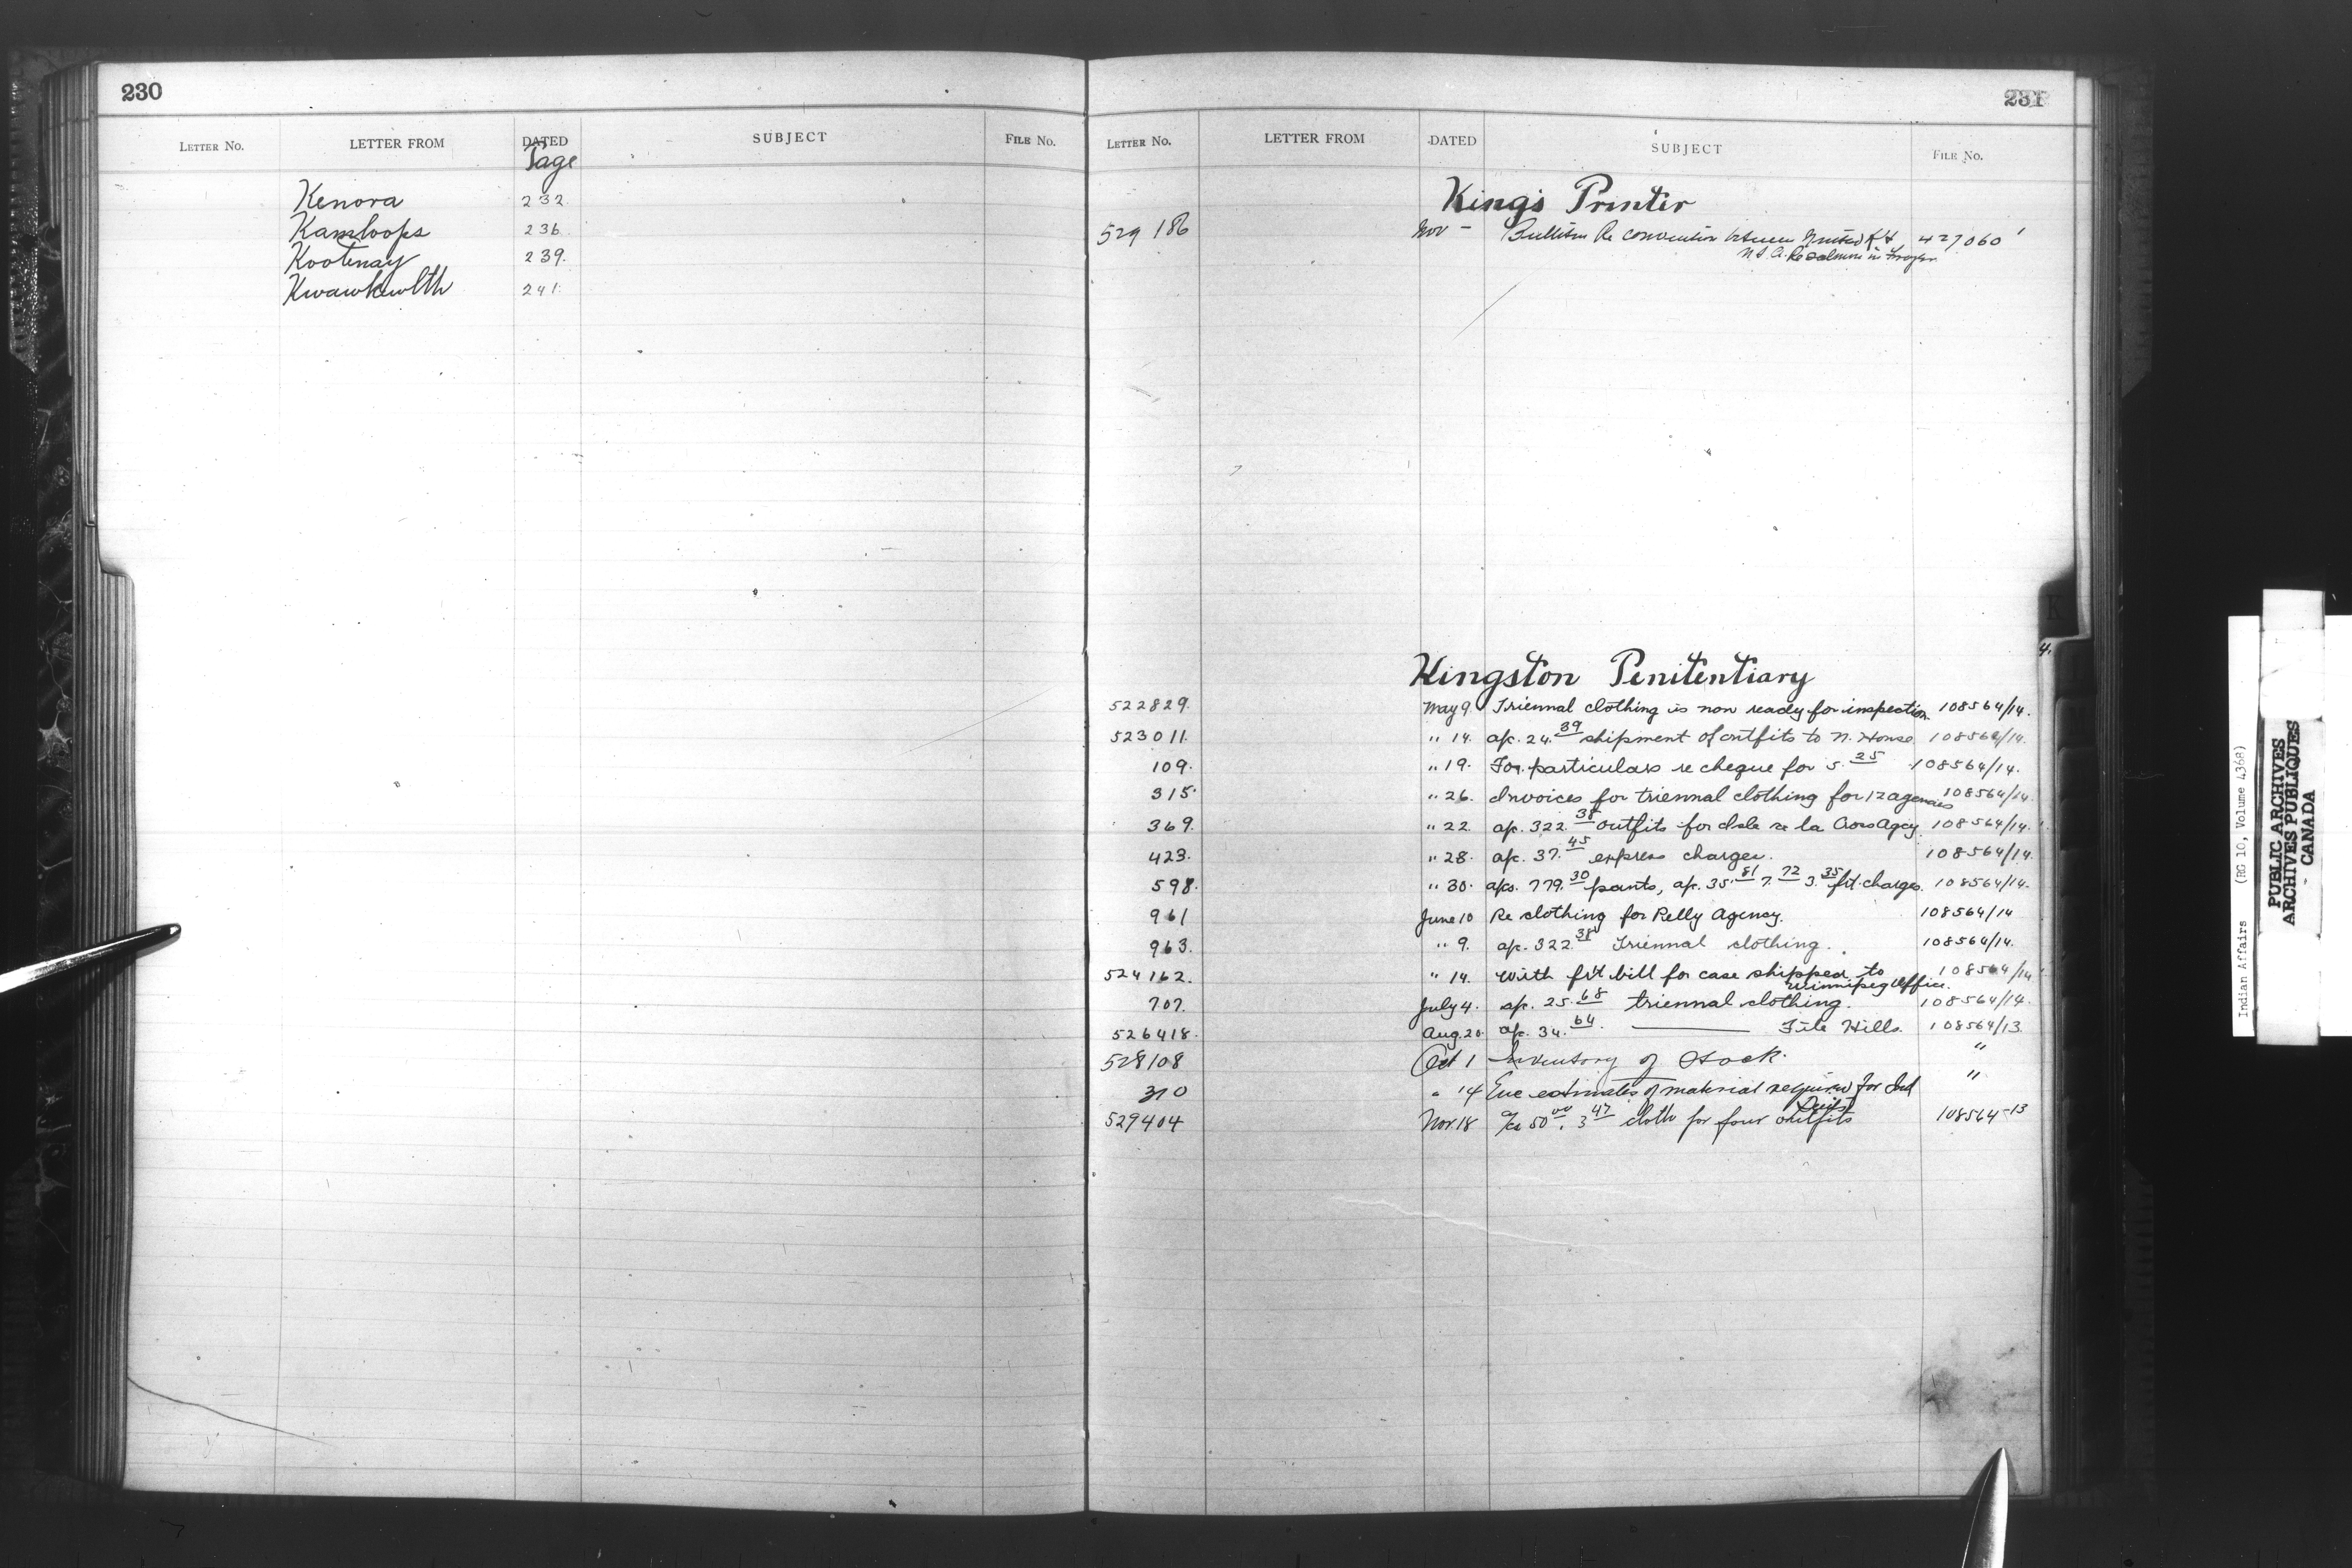 230
LETTER NO. LETTER FROM DATED SUBJECT FILE NO.
Page
Kenora 232
Kamloops 236
Kootenay 239.
Kwawkewlth 241.
231
LETTER NO. LETTER FROM DATED SUBJECT FILE NO.
King's Printer
529186 Nov - Bulletin Re convention between United K & 427060
U.S.A. Re salmon in
Kingston Penitentiary
522829. May 9. Triennal clothing is now ready for inspection 108564/14.
523011. " 14. ap. 24.39 shipment of outfits to N. House 108564/14.
109. " 19. For particulars re cheque for 5.25 108564/14.
315. " 26. Invoices for triennal clothing for 12 agencies 108564/14.
369. " 22. ap. 322.38 outfits for Isle a la Cross Agcy. 108564/14.
423. " 28. ap. 37.45 express charges. 108564/14.
598. " 30. aps. 779.30 pants, ap. 35.81 7.72 3.35 frt. charges. 108564/14.
961 June 10 Re clothing for Pelly Agency. 108564/14
963. " 9. ap. 322.38 Triennal clothing. 108564/14.
524162. " 14. With frt bill for case shipped to 108564/14
Winnipeg Office.
707. July 4. ap. 25.68 triennal clothing. 108564/14.
526418. Aug. 20. ap. 34.64. —— File Hills. 108564/13.
528108 Oct 1 Inventory of Stock. "
310 " 14 Enc estimates of material required for Ind "
Suits
529404 Nov. 18 a/cs 50.00. 3.47 cloth for four outfits 108564-13
K
4.
Indian Affairs (RG 10, Volume 4368)
PUBLIC ARCHIVES
ARCHIVES PUBLIQUES
CANADA